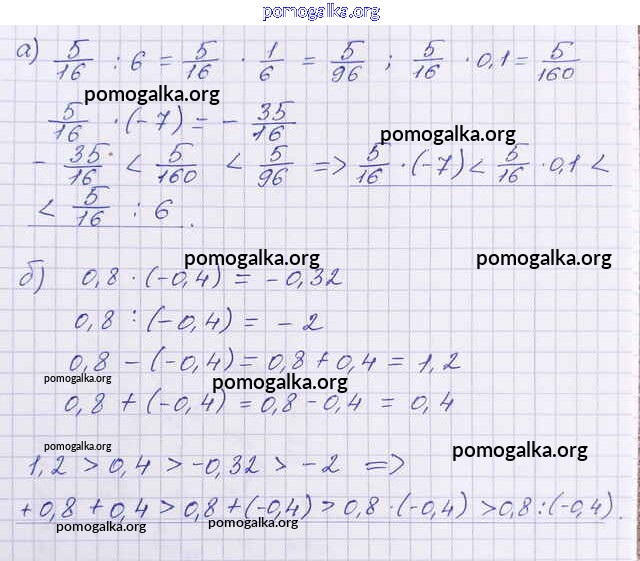 pomogalka.org
а) 5/16 : 6 = 5/16 · 1/6 = 5/96 ; 5/16 · 0,1 = 5/160
pomogalka.org
5/16 · (-7) = - 35/16
pomogalka.org
- 35/16 < 5/160 < 5/96 => 5/16 · (-7) < 5/16 · 0,1 <
< 5/16 : 6 .
pomogalka.org pomogalka.org
б) 0,8 · (-0,4) = -0,32
0,8 : (-0,4) = -2
0,8 - (-0,4) = 0,8 + 0,4 = 1,2
pomogalka.org pomogalka.org
0,8 + (-0,4) = 0,8 - 0,4 = 0,4
pomogalka.org pomogalka.org
1,2 > 0,4 > -0,32 > -2 =>
+ 0,8 + 0,4 > 0,8 + (-0,4) > 0,8 · (-0,4) > 0,8 : (-0,4) .
pomogalka.org pomogalka.org